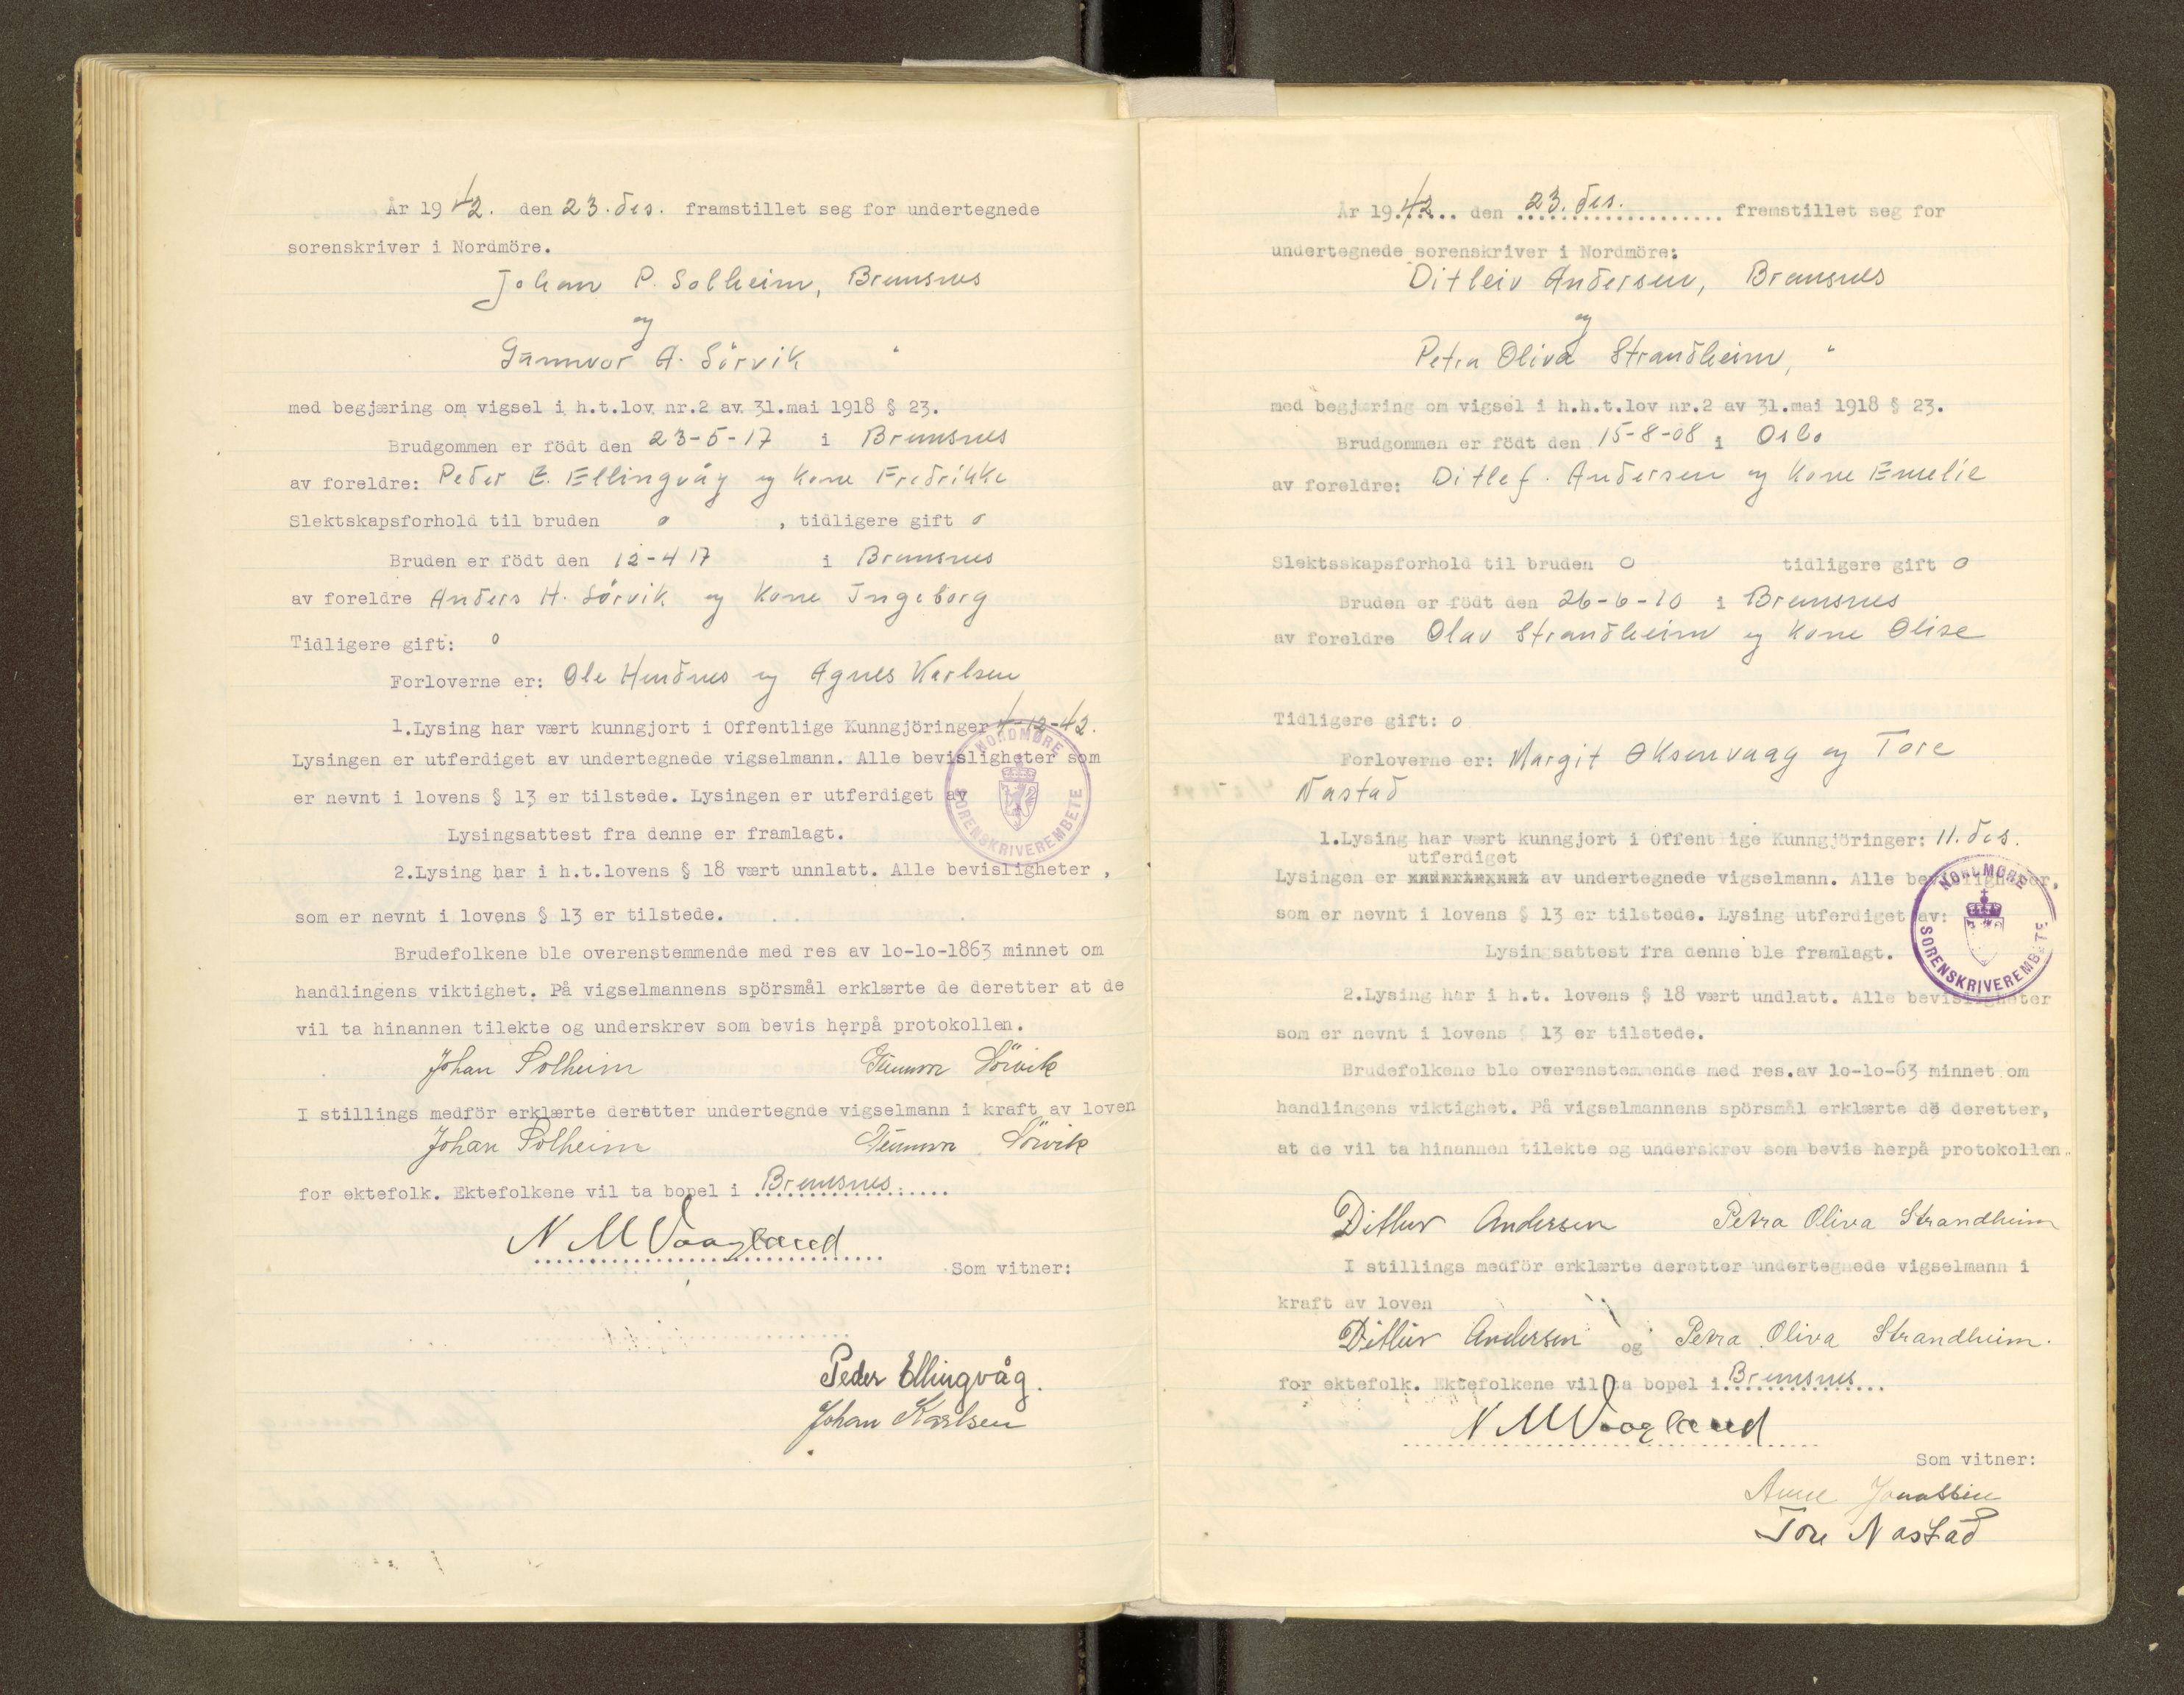 År 19 42. den 23. des. framstillet seg for undertegnede
sorenskriver i Nordmöre.
Johan P. Solheim, Bremsnes
og
Gunnvor A. Sörvik "
med begjæring om vigsel i h.t.lov nr.2 av 31.mai 1918 § 23.
Brudgommen er födt den 23-5-17 i Bremsnes
av foreldre: Peder E. Ellingvåg og kone Fredrikke
Slektskapsforhold til bruden o , tidligere gift o
Bruden er födt den 12-4 17 i Bremsnes
av foreldre Anders H. Sörvik og kone Ingeborg
Tidligere gift: o
Forloverne er: Ole Hendnes og Agnes Karlsen
1.Lysing har vært kunngjort i Offentlige Kunngjöringer 4-12-42.
Lysingen er utferdiget av undertegnede vigselmann. Alle bevisligheter som
er nevnt i lovens § 13 er tilstede. Lysingen er utferdiget av
Lysingsattest fra denne er framlagt.
NORDMØRE SORENSKRIVEREMBETE
2.Lysing har i h.t.lovens § 18 vært unnlatt. Alle bevisligheter ,
som er nevnt i lovens § 13 er tilstede.
Brudefolkene ble overenstemmende med res av 10-10-1863 minnet om
handlingens viktighet. På vigselmannens spörsmål erklærte de deretter at de
vil ta hinannen tilekte og underskrev som bevis herpå protokollen.
Johan Solheim Gunnvor Sörvik
I stillings medför erklærte deretter undertegnde vigselmann i kraft av loven
Johan Solheim Gunnvor Sörvik
for ektefolk. Ektefolkene vil ta bopel i Bremsnes
N M Vaagland
Som vitner:
Peder Ellingvåg.
Johan Karlsen
År 19.42.. den 23. des. fremstillet seg for
undertegnede sorenskriver i Nordmöre:
Ditleiv Andersen, Bremsnes
og
Petra Oliva Strandheim, "
med begjæring om vigsel i h.h.t.lov nr.2 av 31.mai 1918 § 23.
Brudgommen er födt den 15-8-08 i Oslo
av foreldre: Ditlef. Andersen og kone Emelie
Slektsskapsforhold til bruden o tidligere gift o
Bruden er födt den 26-6-10 i Bremsnes
av foreldre Olav Strandheim og kone Olise
Tidligere gift: o
Forloverne er: Margit Oksenvaag og Tore
Nastad
1.Lysing har vært kunngjort i Offentlige Kunngjöringer: 11. des.
utferdiget
Lysingen er av undertegnede vigselmann. Alle bevisligheter,
som er nevnt i lovens § 13 er tilstede. Lysing utferdiget av:
Lysingsattest fra denne ble framlagt.
NORDMØRE SORENSKRIVEREMBETE
2.Lysing har i h.t. lovens § 18 vært undlatt. Alle bevisligheter
som er nevnt i lovens § 13 er tilstede.
Brudefolkene ble overenstemmende med res.av 10-10-63 minnet om
handlingens viktighet. På vigselmannens spörsmål erklærte de deretter,
at de vil ta hinannen tilekte og underskrev som bevis herpå protokollen.
Ditleiv Andersen Petra Oliva Strandheim
I stillings medför erklærte deretter undertegnede vigselmann i
kraft av loven
Ditleiv Andersen og Petra Oliva Strandheim.
for ektefolk. Ektefolkene vil ta bopel i Bremsnes
N M Vaagland
Som vitner:
Anne Jonassen
Tore Nastad